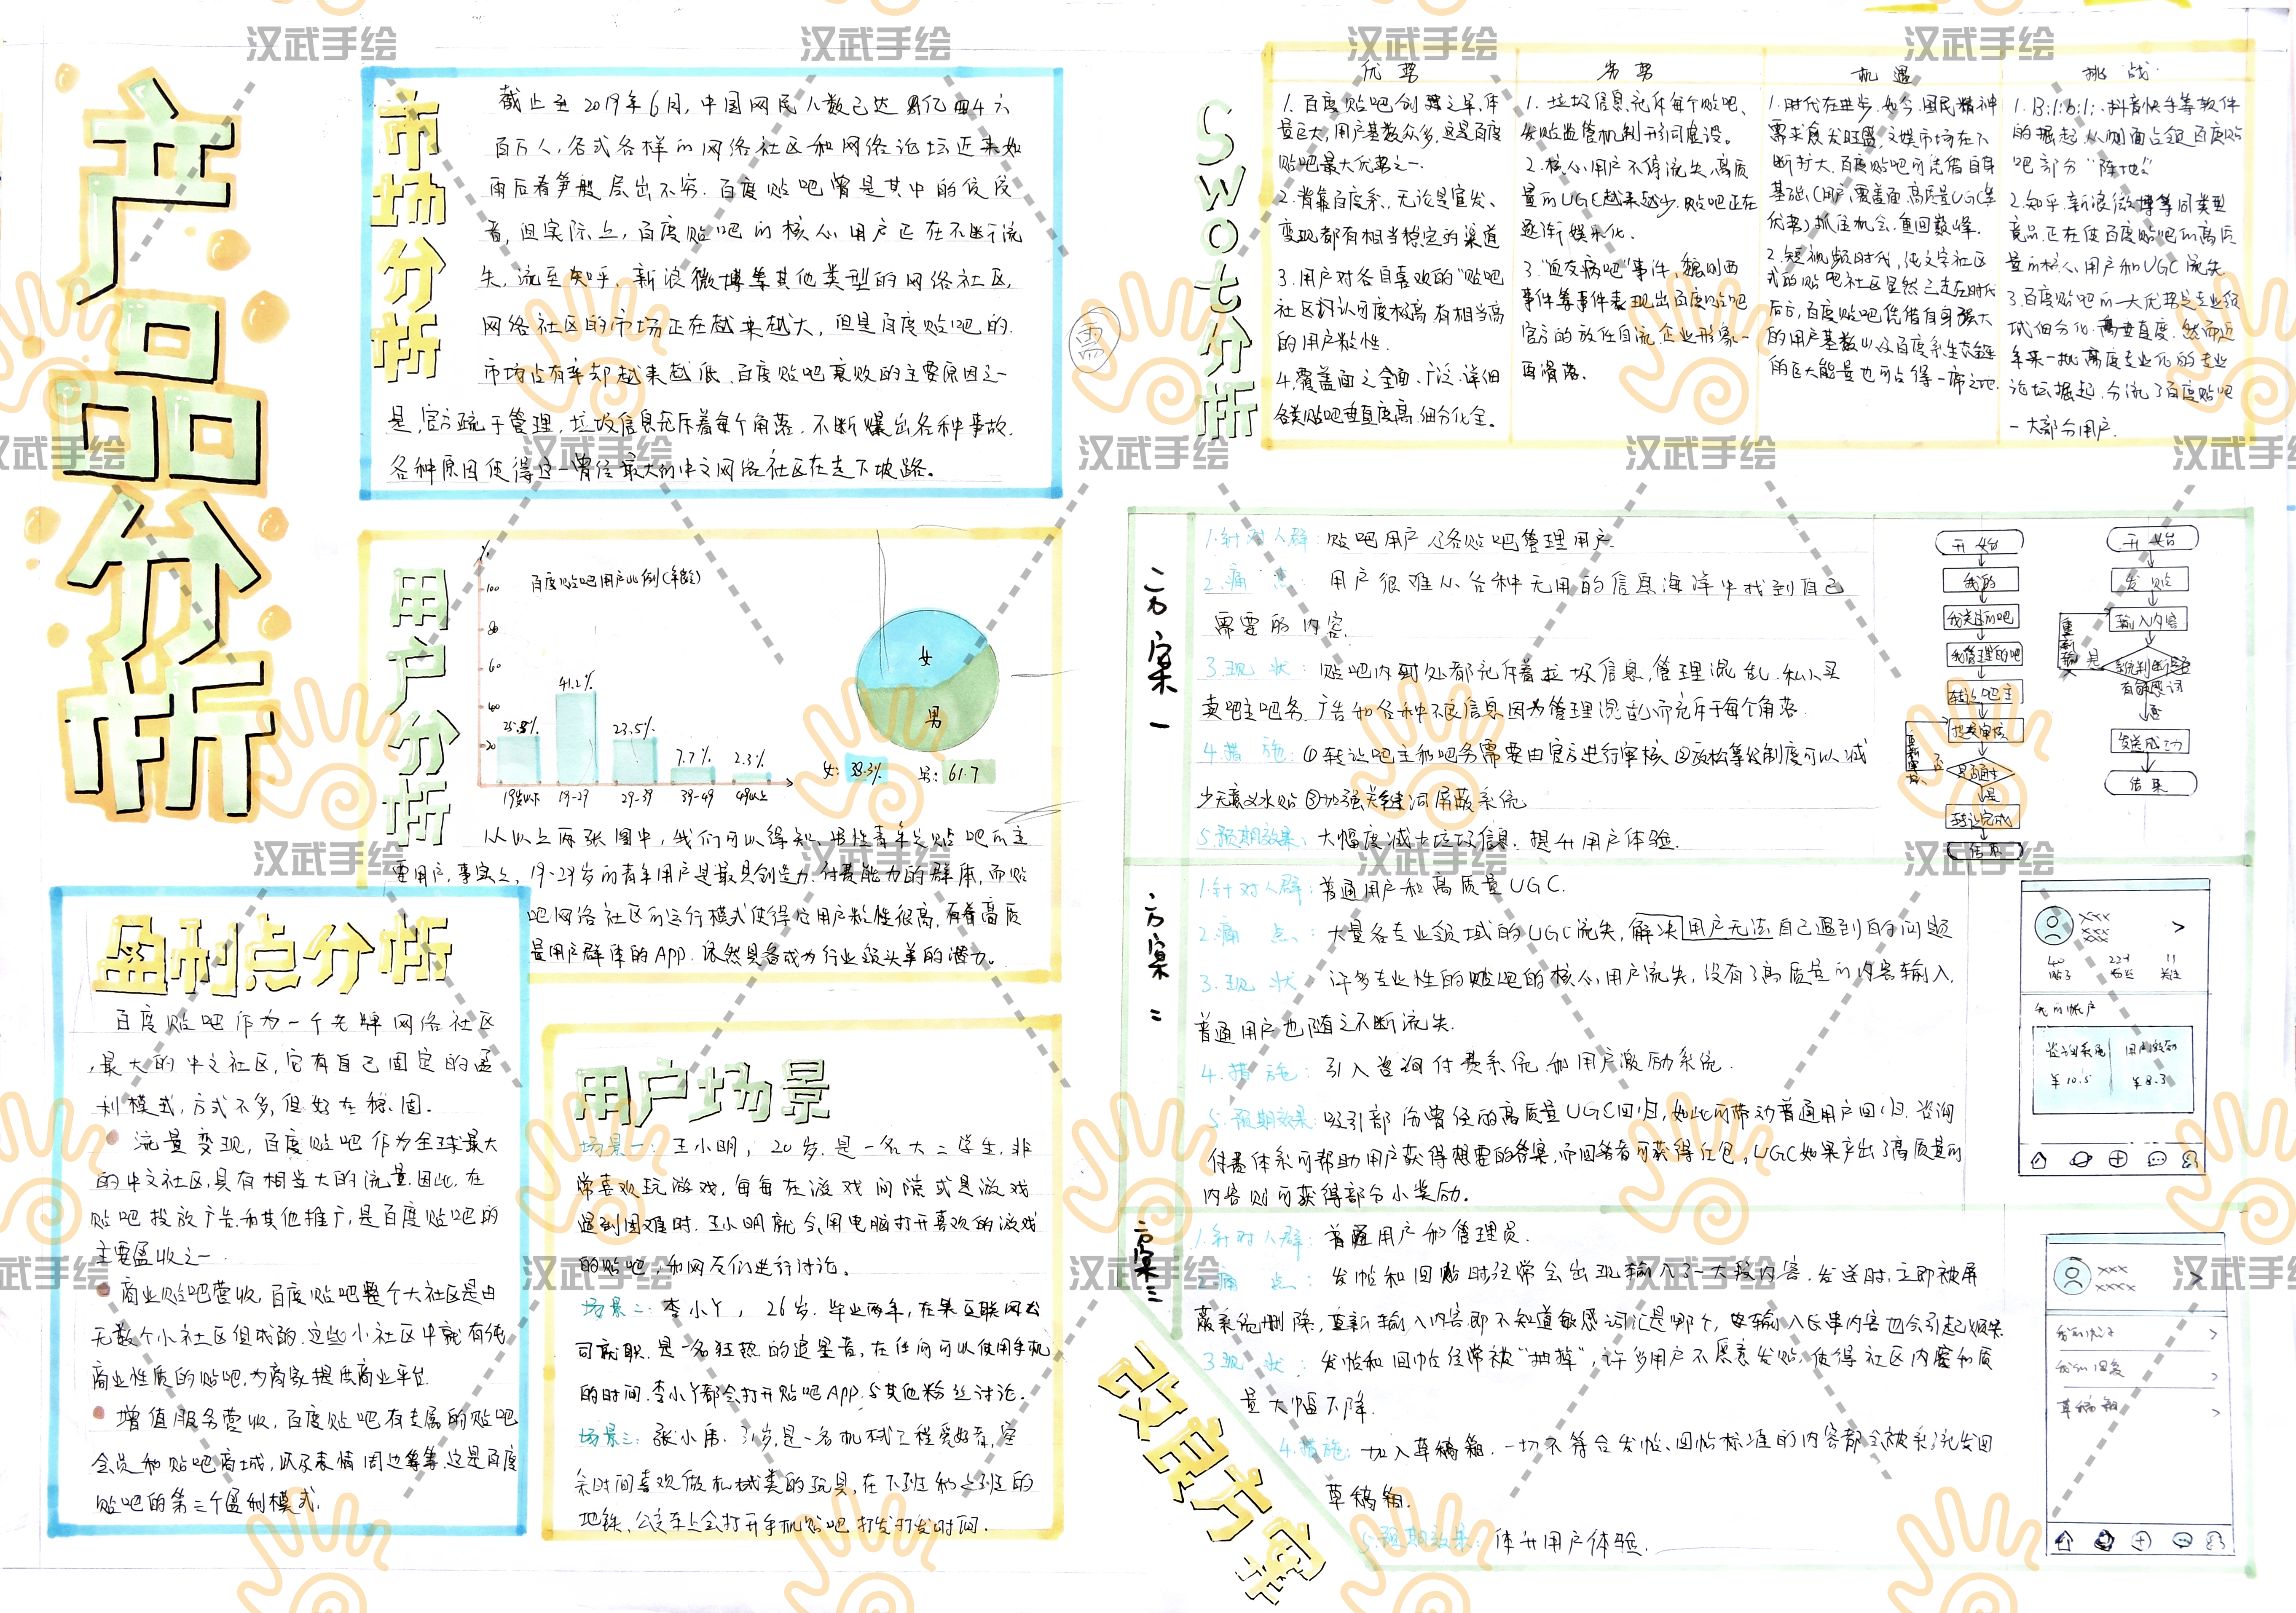 产品分析
市场分析
截止至2019年6月,中国网民人数已达8亿四千六
百万人,各式各样的网络社区和网络论坛近来如
雨后春笋般层出不穷.百度贴吧曾是其中的佼佼
者,但实际上,百度贴吧的核心用户正在不断流
失,流至知乎、新浪微博等其他类型的网络社区,
网络社区的市场正在越来越大,但是百度贴吧的
市场占有率却越来越低.百度贴吧衰败的主要原因之一
是,官方疏于管理,垃圾信息充斥着每个角落,不断爆出各种事故.
各种原因使得这一曾经最大的中文网络社区在走下坡路。
用户分析
百度贴吧用户比例(年龄)
%
100
80
60
40
20
41.2%
23.5%
7.7%
2.3%
19岁以下 19-29 29-39 39-49 49以上
女
男
女: 38.3% 男: 61.7
从以上两张图中,我们可以得知,男性青年是贴吧的主
要用户,事实上,19-29岁的青年用户是最具创造力,付费能力的群体,而贴
吧网络社区的运行模式使得它用户粘性很高,有着高质
量用户群体的APP,依然具备成为行业领头羊的潜力。
盈利点分析
百度贴吧作为一个老牌网络社区
,最大的中文社区,它有自己固定的盈
利模式,方式不多,但好在稳固.
流量变现,百度贴吧作为全球最大
的中文社区,具有相当大的流量.因此,在
贴吧投放广告和其他推广,是百度贴吧的
主要盈收之一.
商业贴吧营收,百度贴吧整个大社区是由
无数个小社区组成的.这些小社区中就有纯
商业性质的贴吧,为商家提供商业平台.
增值服务营收,百度贴吧有专属的贴吧
会员和贴吧商城,以及表情周边等等,这是百度
贴吧的第三个盈利模式.
用户场景
场景一:王小明,20岁.是一名大二学生,非
常喜欢玩游戏,每每在游戏间隙或是游戏
遇到困难时.王小明就会用电脑打开喜欢的游戏
的贴吧,和网友们进行讨论。
场景二:李小丫,26岁.毕业两年,在某互联网公
司就职.是一名狂热的追星者,在任何可以使用手机
的时间.李小丫都会打开贴吧APP.与其他粉丝讨论.
场景三:张小伟.31岁,是一名机械工程爱好者,空
余时间喜欢做机械类的玩具,在下班和上班的
地铁、公交车上会打开手机贴吧打发打发时间.
需
SWOT分析
优势
1.百度贴吧创建之早,体
量巨大,用户基数众多,这是百度
贴吧最大优势之一.
2.背靠百度系,无论是宣发、
变现都有相当稳定的渠道
3.用户对各自喜欢的"贴吧
社区"认可度极高,有相当高
的用户粘性.
4.覆盖面之全面、广泛.详细
各类贴吧垂直度高.细分化全。
劣势
1.垃圾信息充斥每个贴吧、
发贴监管机制形同虚设。
2.核心用户不停流失,高质
量的UGC越来越少.贴吧正在
逐渐娱乐化。
3."血友病吧"事件,魏则西
事件等事件表现出百度贴吧
官方的放任自流,企业形象一
再滑落。
机遇
1.时代在进步.如今.国民精神
需求愈发旺盛,文娱市场在不
断扩大.百度贴吧可凭借自身
基础(用户、覆盖面、高质量UGC等
优势)抓住机会,重回巅峰.
2.短视频时代,纯文字社区
式的贴吧社区显然已走在时代
后方,百度贴吧凭借自身强大
的用户基数以及百度系生态链
的巨大能量也可占得一席之地.
挑战
1.Bilibili、抖音快手等软件
的掘起,从侧面占领百度贴
吧部分"阵地"
2.知乎.新浪微博等同类型
竞品正在使百度贴吧的高质
量的核心用户和UGC流失
3.百度贴吧的一大优势是专业领
域细分化,高垂直度.然而近
年来一批高度专业化的专业
论坛掘起.分流了百度贴吧
一大部分用户.
改良方案
方案一
1.针对人群:贴吧用户及各贴吧管理用户.
2.痛点:用户很难从各种无用的信息海洋中找到自己
需要的内容.
3.现状:贴吧内到处都充斥着垃圾信息,管理混乱.私人买
卖吧主吧务.广告和各种不良信息因为管理混乱而充斥于每个角落.
4.措施:①转让吧主和吧务需要由官方进行审核②放松等级制度可以减
少无意义水贴③加强关键词屏蔽系统
5.预期效果:大幅度减少垃圾信息.提升用户体验.
开始
我的
我关注的吧
我管理的吧
转让吧主
提交审核
是否通过
否
是
转让完成
结束
开始
发贴
输入内容
系统判断是否
有敏感词
是
重新输入
否
发送成功
结束
方案二
1.针对人群:普通用户和高质量UGC.
2.痛点:大量各专业领域的UGC流失,解决用户无法自己遇到的问题
3.现状:许多专业性的贴吧的核心用户流失,没有了高质量的内容输入,
普通用户也随之不断流失.
4.措施:引入咨询付费系统和用户激励系统.
5.预期效果:吸引部份曾经的高质量UGC回归,如此可带动普通用户回归.咨询
付费体系可帮助用户获得想要的答案,而回答者可获得红包,UGC如果产出了高质量的
内容则可获得部分小奖励.
xxx
xxx
xxx
>
40 221 11
贴子 关注
我的账户
咨询系统 用户激励
¥10.5 ¥8.3
方案三
1.针对人群:普通用户和管理员.
2.痛点:发帖和回贴时经常会出现输入了一大段内容.发送时,立即被屏
蔽系统删除,重新输入内容却不知道敏感词汇是哪个,
3.现状:发帖和回帖经常被"抽掉",许多用户不愿意发贴,使得社区内容和质
量大幅下降.
4.措施:加入草稿箱.一切不符合发帖、回帖标准的内容都会被系统发回
草稿箱.
5.预期效果:体升用户体验.
xxx
xxxx
>
我的贴子 >
我的回复 >
草稿箱 >
汉武手绘